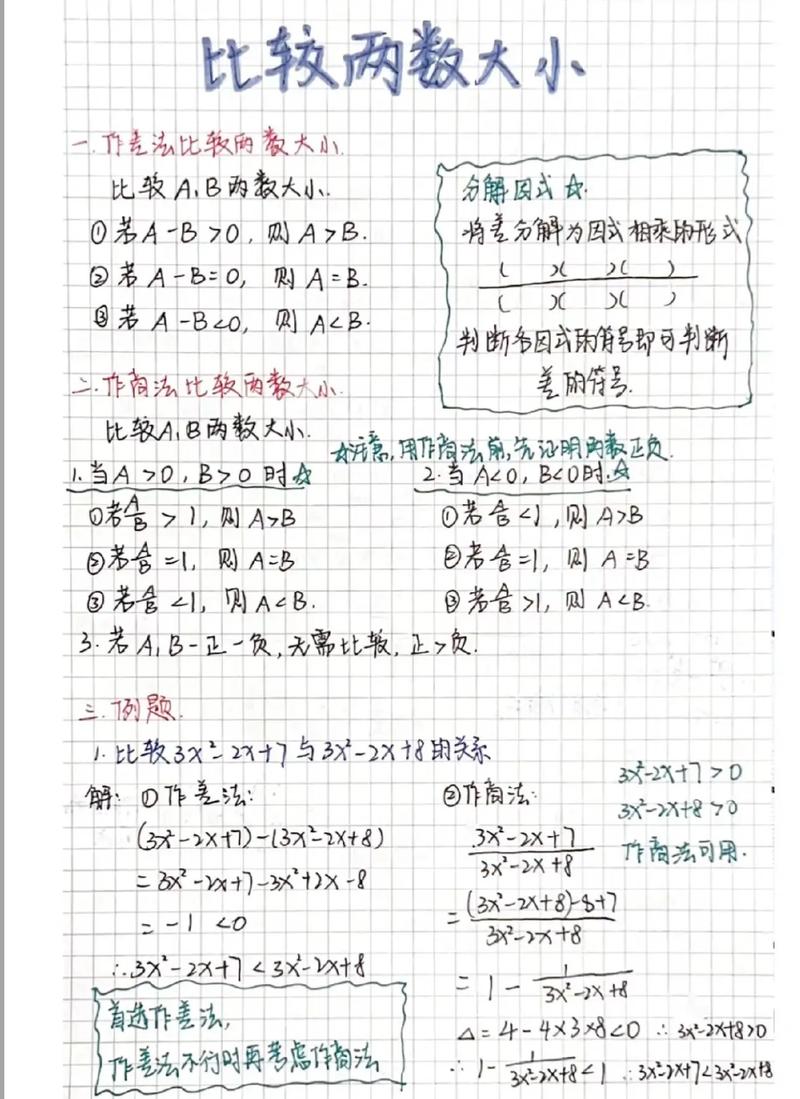 比较两数大小
一.作差法比较两数大小.
比较A,B两数大小.
①若A-B>0,则A>B.
②若A-B=0,则A=B.
③若A-B<0,则A<B.
分解因式☆.
将差分解为因式相乘的形式
( )( )( )
( )( )( )
判断各因式的符号即可判断
差的符号.
二.作商法比较两数大小.
比较A,B两数大小.
☆注意,用作商法前,先证明两数正负.
1.当A>0,B>0时☆
①若A/B>1,则A>B
②若A/B=1,则A=B
③若A/B<1,则A<B.
2.当A<0,B<0时.☆
①若A/B<1,则A>B
②若A/B=1,则A=B
③若A/B>1,则A<B.
3.若A,B一正一负,无需比较,正>负.
三.例题.
1.比较3x²-2x+7与3x²-2x+8的关系
解:①作差法:
(3x²-2x+7)-(3x²-2x+8)
=3x²-2x+7-3x²+2x-8
=-1<0
∴3x²-2x+7<3x²-2x+8
首选作差法,
作差法不行时再考虑作商法
②作商法:
3x²-2x+7>0
3x²-2x+8>0
作商法可用.
3x²-2x+7
3x²-2x+8
=(3x²-2x+8)-8+7
3x²-2x+8
=1-1/3x²-2x+8
△=4-4×3×8<0 ∴3x²-2x+8>0
∴1-1/3x²-2x+8<1 ∴3x²-2x+7<3x²-2x+8